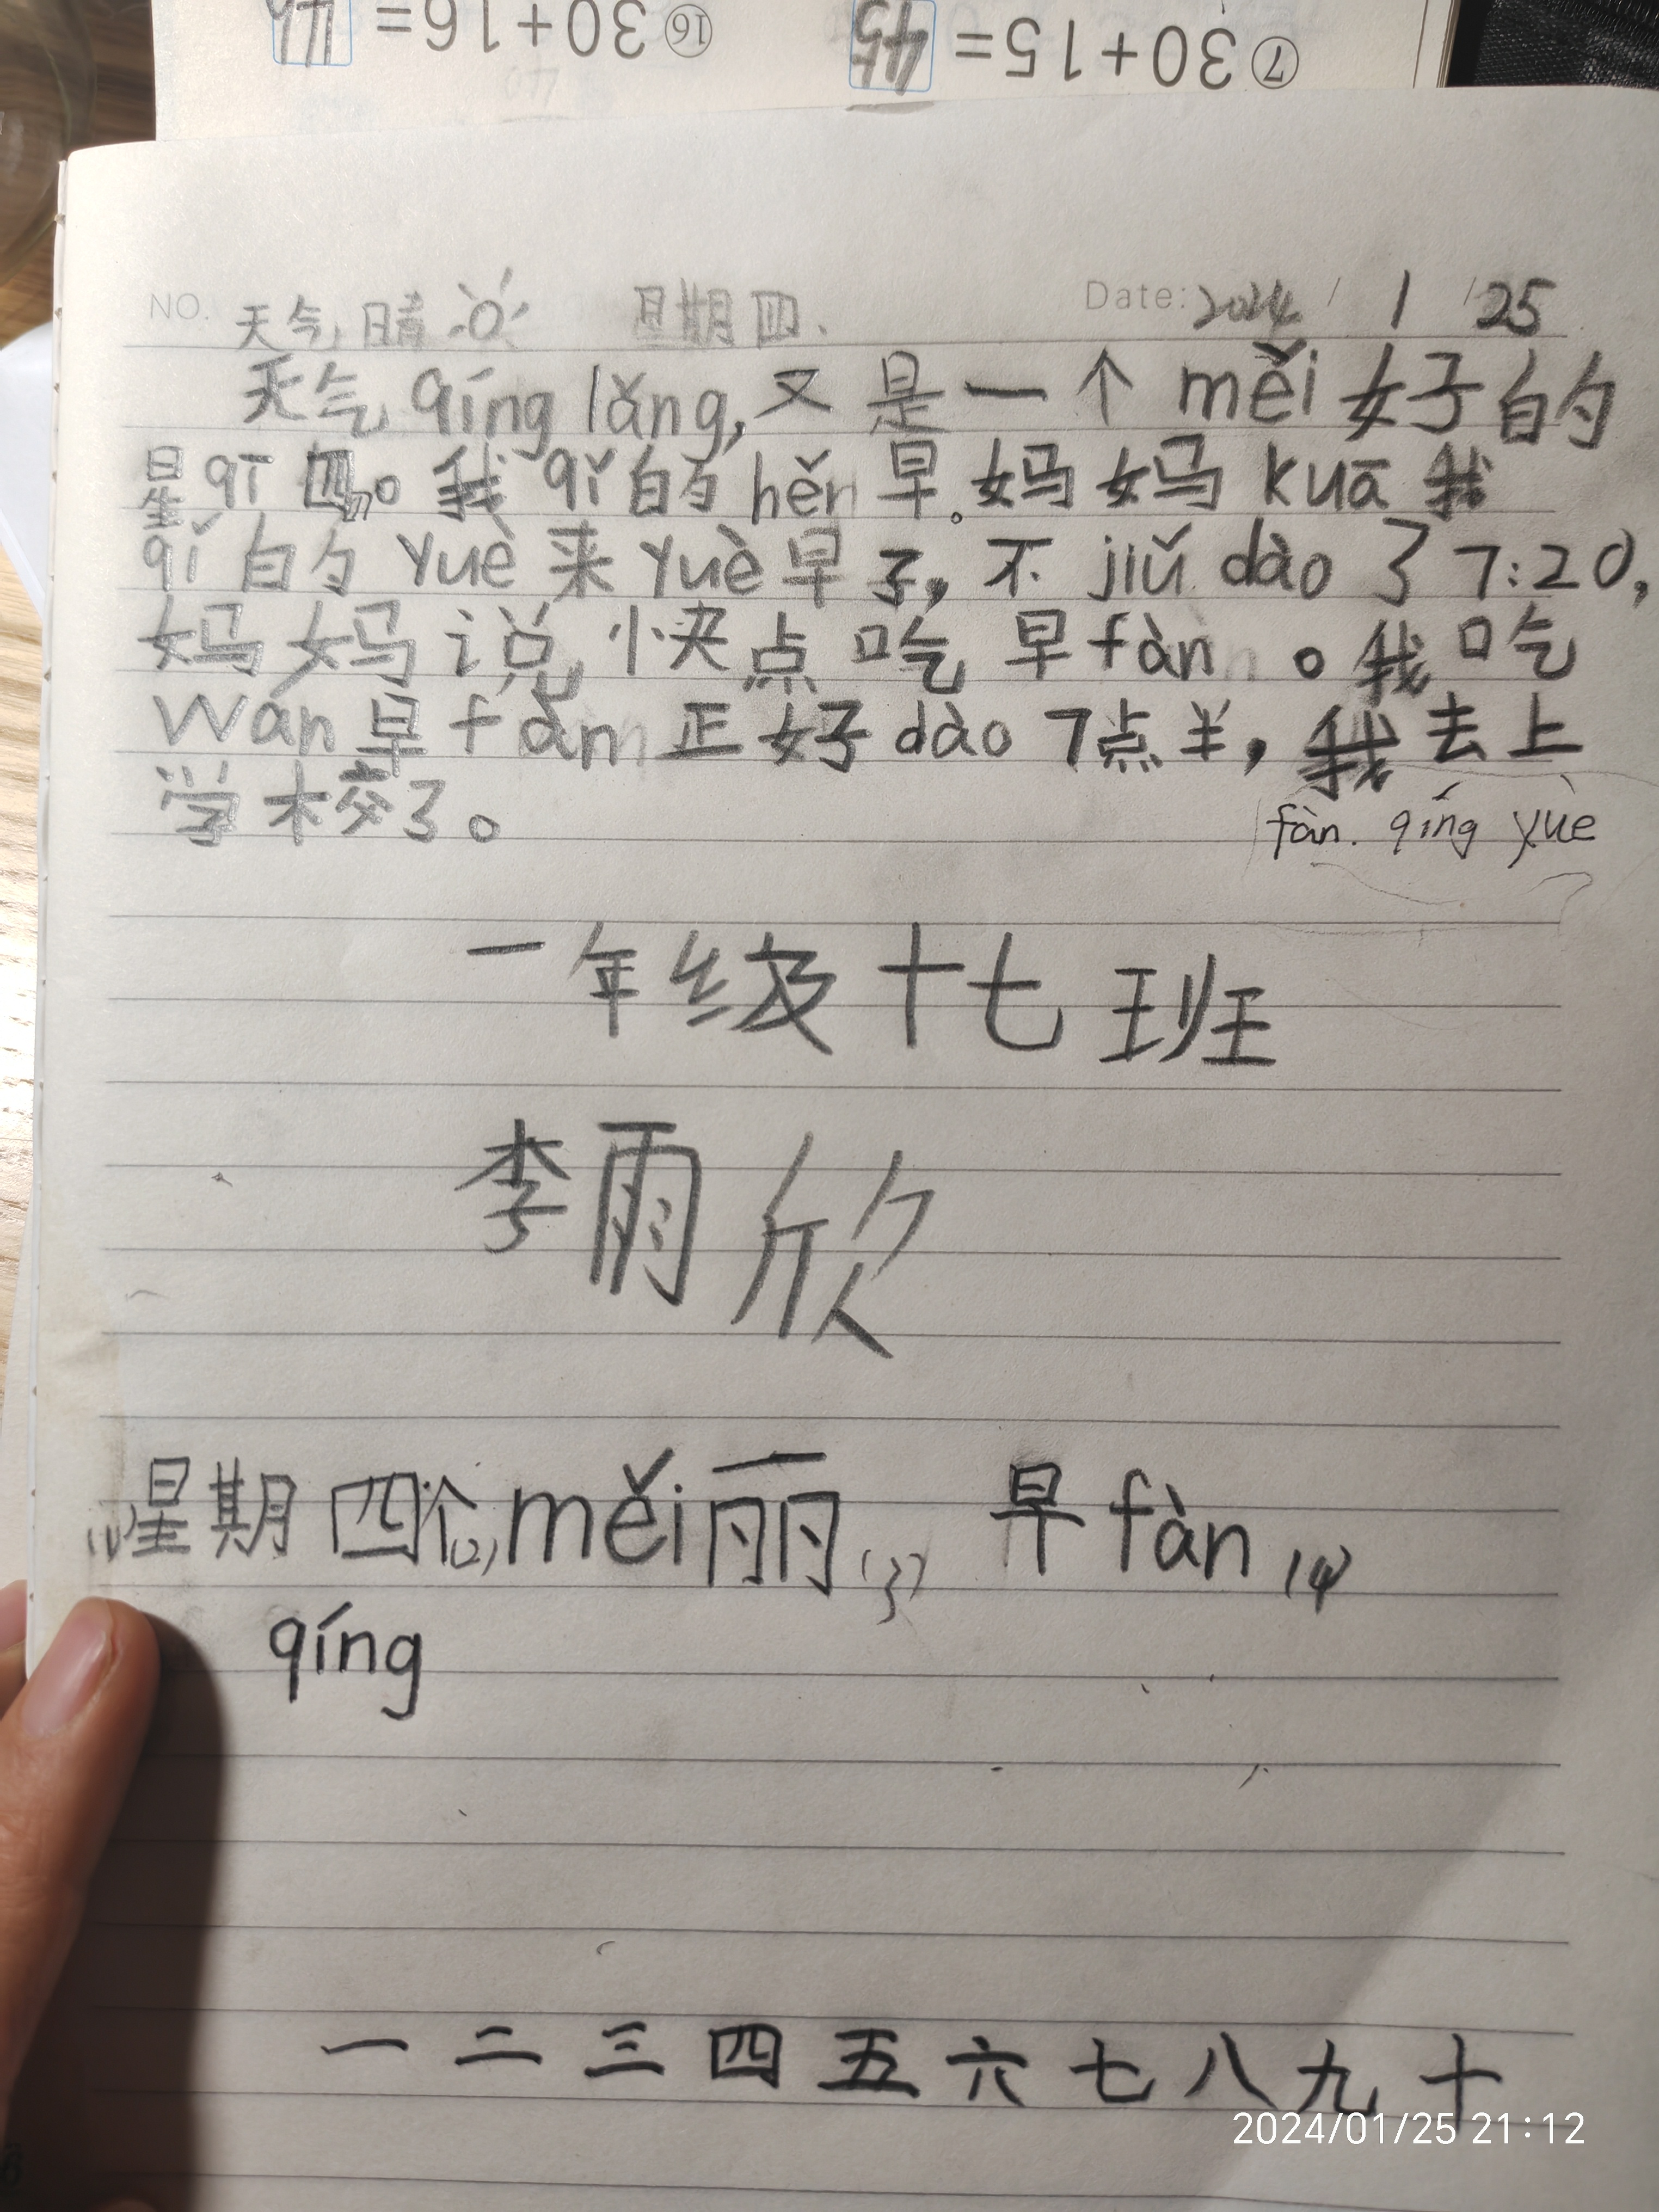 ⑯30+16=46
⑦30+15=45
NO. 天气晴 星期四. Date: 2024 / 1 / 25
天气 qíng lǎng, 又是一个 měi 好的
星 qī 四。我 qǐ 的 hěn 早。妈妈 kuā 我
qǐ 的 yuè 来 yuè 早了, 不 jiǔ dào 了 7:20,
妈妈说, 快点吃早 fàn 。我吃
wán 早 fàn 正好 dào 7点半, 我去上
学校了。
fàn. qíng yuè
一年级十七班
李雨欣
(1)星期四个(2) měi 丽(3) 早 fàn (4)
qíng
一 二 三 四 五 六 七 八 九 十
2024/01/25 21:12